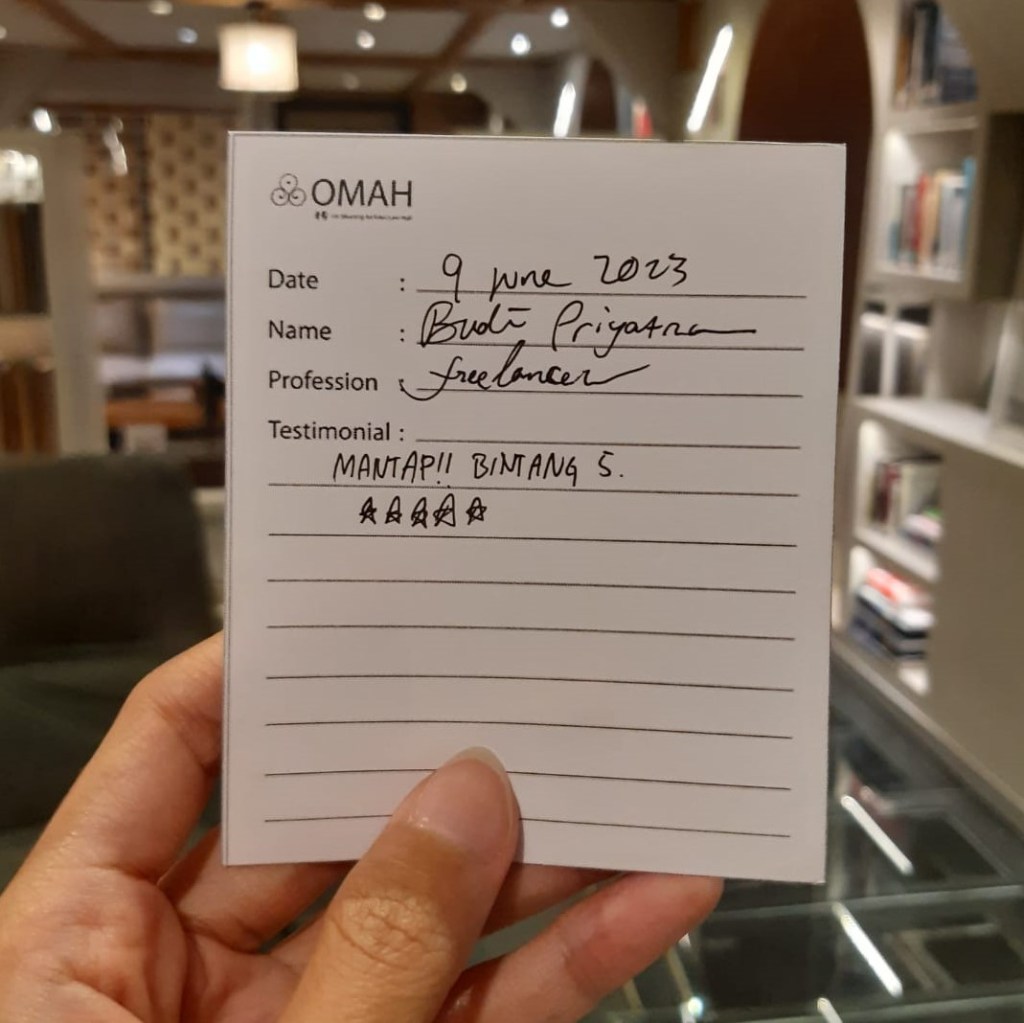 OMAH
Date : 9 June 2023
Name : Budi Priyatna
Profession : freelancer
Testimonial :
MANTAP!! BINTANG 5.
★★★★★